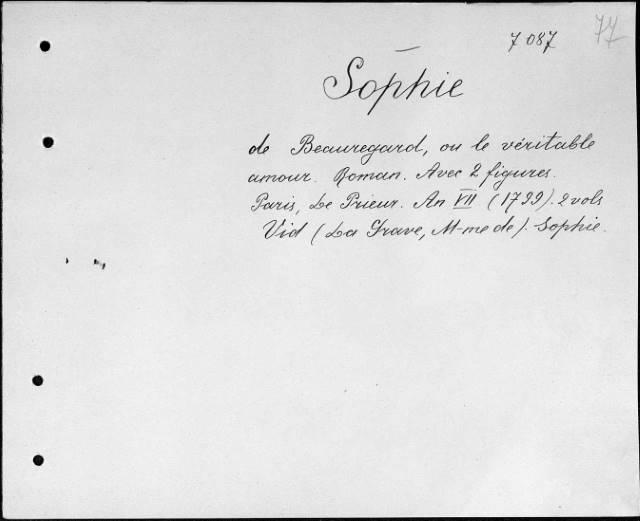 7087
77
Sophie
de Beauregard, ou le véritable
amour. Roman. Avec 2 figures.
Paris, Le Prieur. An VII (1799). 2 vols
Vid (La Grave, M-me de). Sophie.